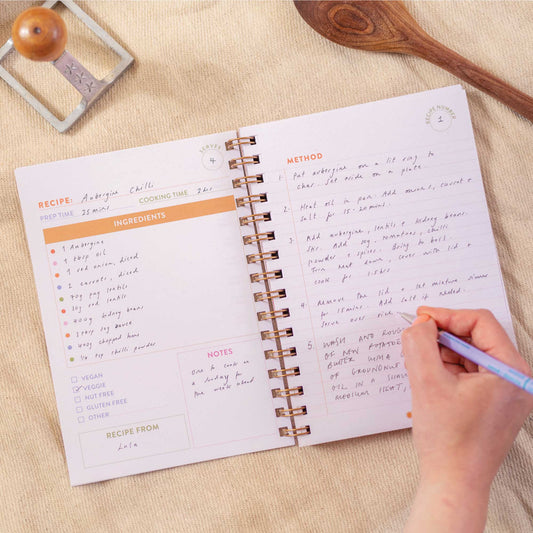 SERVES
4
RECIPE: Aubergine Chilli
PREP TIME 25 mins COOKING TIME 2 hr
INGREDIENTS
1 Aubergine
1 tbsp oil
1 red onion, diced
2 carrots, diced
70g puy lentils
30g red lentils
400g kidney beans
3 tbsp soy sauce
400g chopped toms
1/4 tsp chilli powder
VEGAN
VEGGIE
NUT FREE
GLUTEN FREE
OTHER
NOTES
One to cook on
a Sunday for
the week ahead
RECIPE FROM
Lola
RECIPE NUMBER
1
METHOD
1. Put aubergine on a lit ring to
char. Set aside on a plate.
2. Heat oil in pan. Add onion, carrot &
salt for 15-20mins.
3. Add aubergine, lentils & kidney beans.
Stir. Add soy, tomatoes, chilli
powder & spices. Bring to boil.
Turn heat down, cover with lid &
cook for 1.5hrs
4. Remove the lid & let mixture simmer
for 15 mins. Add salt if needed.
Serve over rice,
5. WASH AND
OF NEW POTATOES
BUTTER WITH A
OF GROUNDNUT
OIL IN A
MEDIUM HEAT,